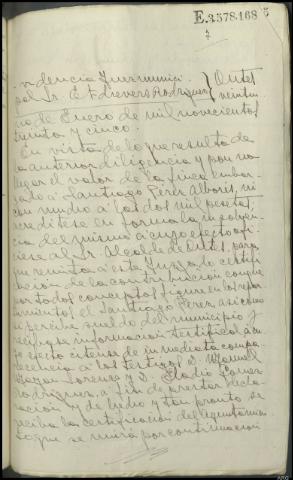 E.3.578.168 5
Providencia Juez municipal } Outes
Sr. Etchevers Rodriguez } veintiu
no de Enero de mil novecientos
treinta y cinco.
En virtud de lo que resulta de
la anterior diligencia y por no
llegar el valor de la finca embar
gada á Santiago Pérez Alborís, ni
con mucho á las dos mil pesetas,
acredítese en forma la insolven
cia del mismo á cuyo efecto ofi
ciese al Sr. Alcalde de Outes, para
que remita á este Juzgado certifi
cación de la contribución con que
por todos conceptos figure en los repar
timientos el Santiago Pérez, así como
si percibe sueldo del municipio y
recíbase información testifical á cu
yo efecto cítense de inmediata compa
recencia á los testigos D. Manuel
Lorenzo y D. Eladio
Rodriguez, á fin de prestar decla
ración y de hecho y tan pronto se
reciba la certificación del
lo que se unirá por continuación